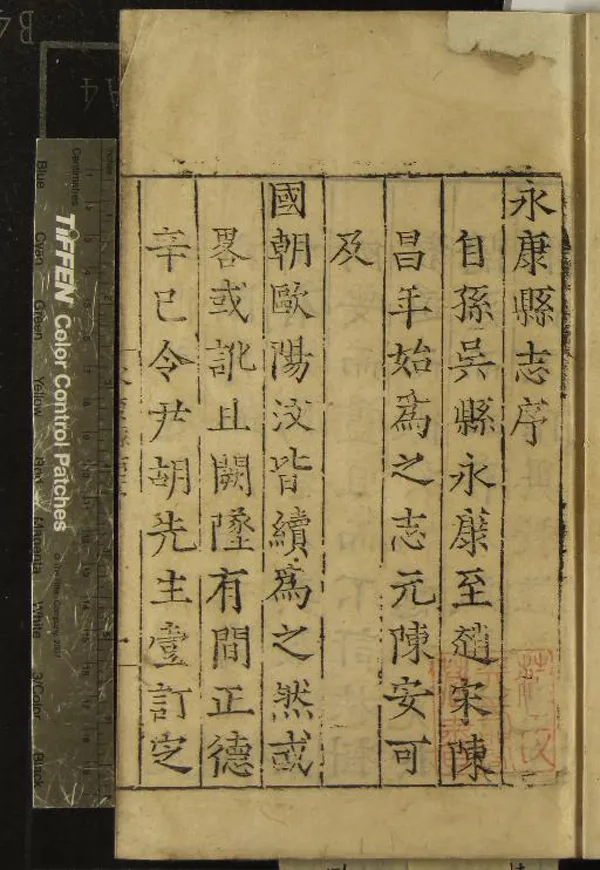 永康縣志序
自孫吳縣永康至趙宋陳
昌年始為之志元陳安可
及
國朝歐陽汶皆續為之然或
畧或訛且闕墜有間正德
辛巳令尹胡先生壹訂定
Centimetres
Inches
TIFFEN Color Control Patches
Blue
Cyan
Green
Yellow
Red
Magenta
White
3/Color
Black
A4
B4